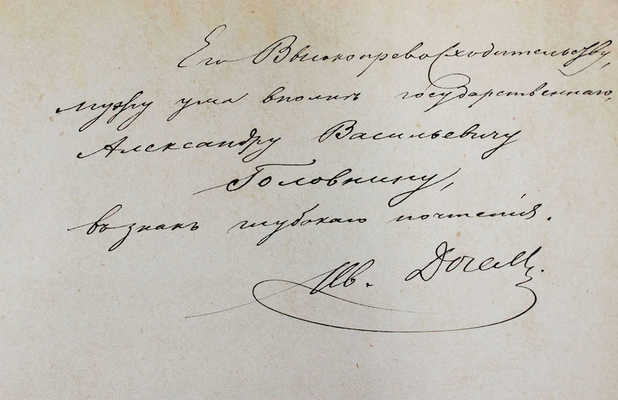 Его Высокопревосходительству,
мужу ума вполнѣ государственнаго,
Александру Васильевичу
Головнину,
въ знакъ глубокаго почтенія.
Ив.